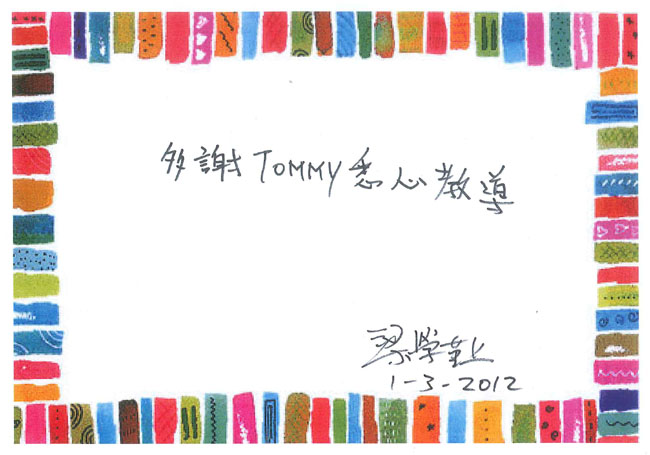 多謝TOMMY悉心教導
梁學勤上
1-3-2012